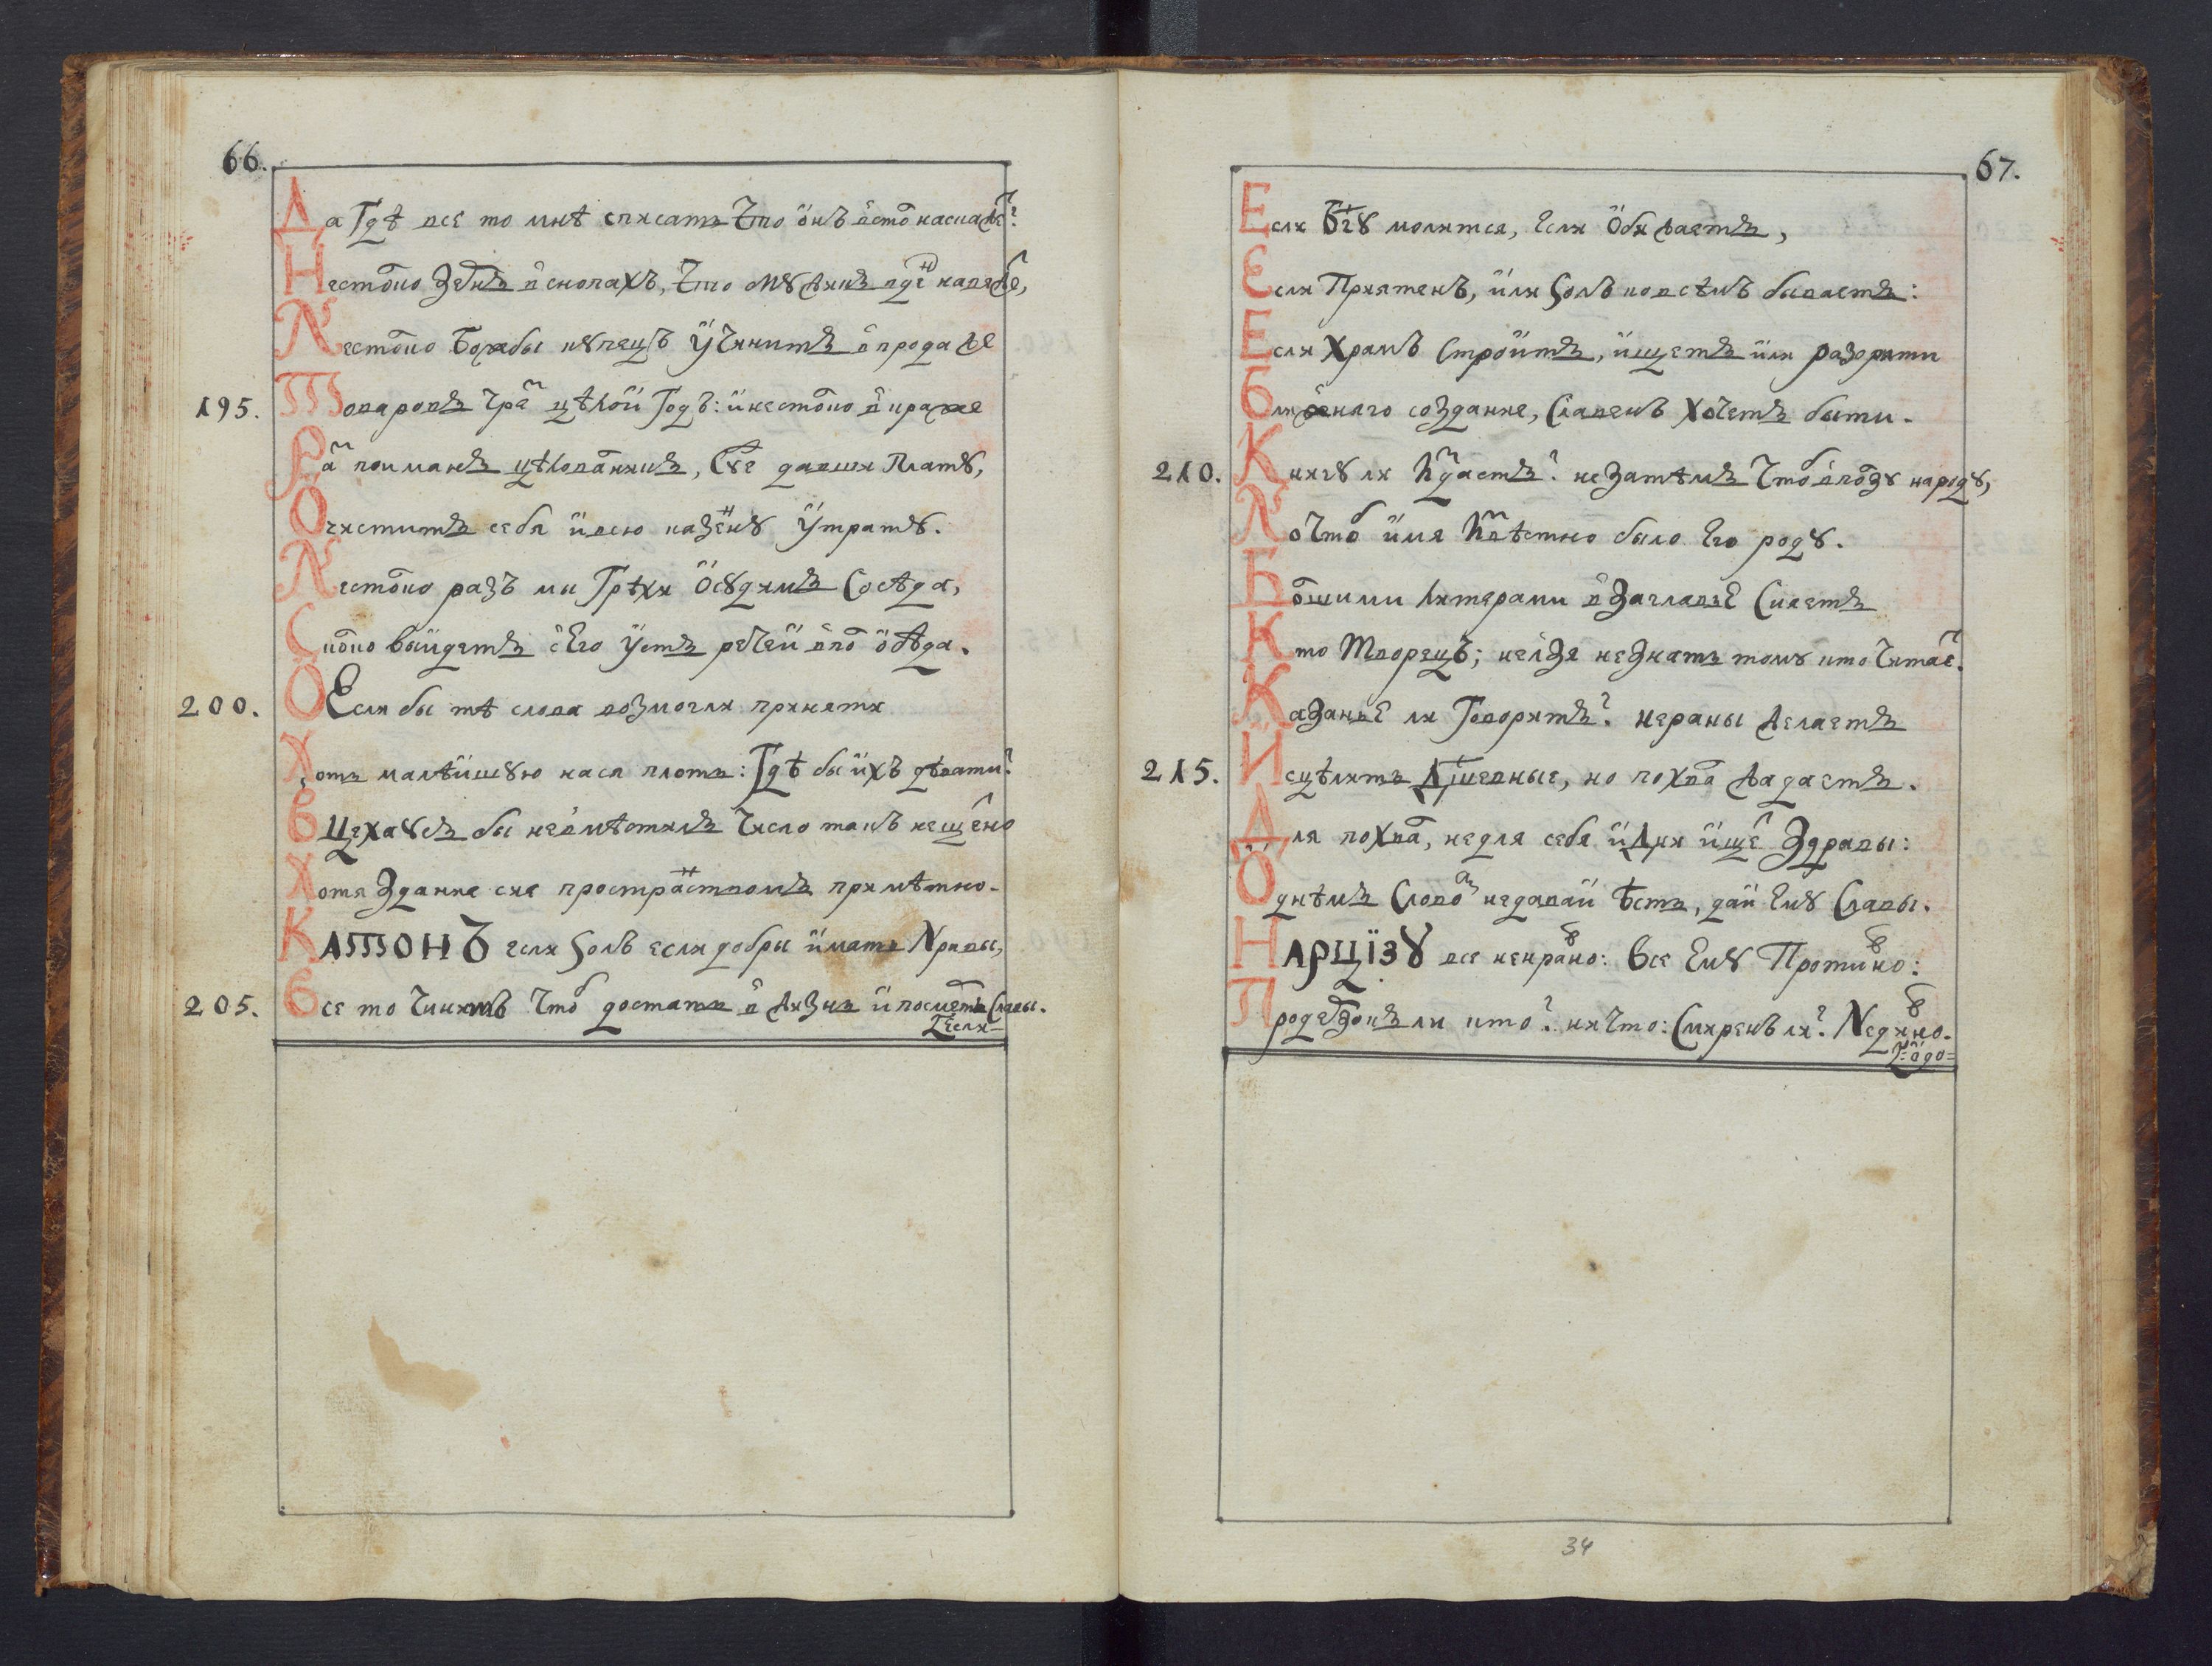 66.
Да Гдѣ все то мнѣ списать Что онъ всто наскаже?
Нестолко Зернъ вснопахъ, Что Мужикъ вдень навяже,
Нестолко Божбы купецъ Учинитъ впродаже
195. Товаровъ Чрез цѣлой Годъ: инестолко вкраже
Разъ поиманъ цѣловалникъ, Суе давши Плату,
Очиститъ себя ивсю казенну Утрату.
Нестолко разъ ми Грѣхи Осудимъ Сосѣда,
Сколко выидетъ сЕго Устъ речеи впол обѣда.
200. О Если бы тѣ слова возмогли приняти
Хоть малѣишую нася плоть: Гдѣ бы ихъ дѣвати?
В Цехаусъ бы невмѣстилъ Число такъ нещетно
Хотя Здание сие пространствомъ примѣтно.
КАТОНЪ если Золъ если добры имать Нравы,
205. Все то Чинитъ Чтоб достать в жизнь ипосмерть Славы.
Если
67.
Если Бгу молится, Если Обижаетъ,
Если Приятенъ, или Золъ ковсѣмъ бываетъ:
Если Храмъ Строитъ, ищетъ или разорити
Ближнаго создание, Славенъ Хочетъ быти.
210. Книгу ли Издастъ? не Затѣмъ Чтоб вползу народу,
Но Чтоб имя Извѣстно было Его роду.
Болшими Литерами вЗаглавье Сияетъ
Кто Творецъ; нелзя незнать тому кто Читает.
Казанье ли Говоритъ? нераны желаетъ
215. Исцѣлить Дшевные, но похвал жадаетъ.
Для похвал, недля себя иДни ищет Здравы:
Однѣмъ Словом недаваи ѣсть, даи Ему Славы.
НАРЦІЗУ все некправно: Все Ему Противно:
Продерзокъ ли кто? ничто: Смиренъ ли? Недивно.
34